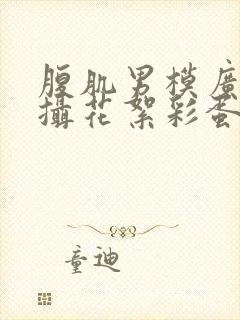 腹肌男模廣
攝花絮彩蛋
童迪